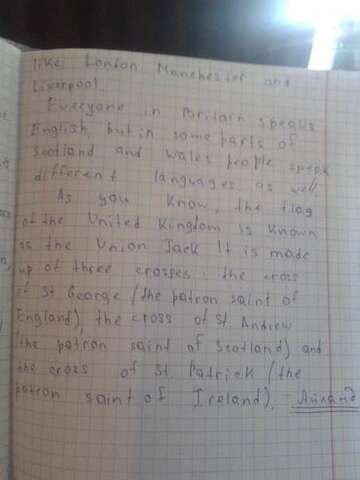 like London Manchester and
Liverpool.
Everyone in Britain speaks
English, but in some parts of
Scotland and Wales people speak
different languages as well
As you know, the flag
of the United Kingdom is known
as the Union Jack It is made
up of three crosses. the cross
of St George (the patron saint of
England), the cross of St. Andrew
(the patron saint of Scotland) and
the cross of St. Patrick (the
patron saint of Ireland).